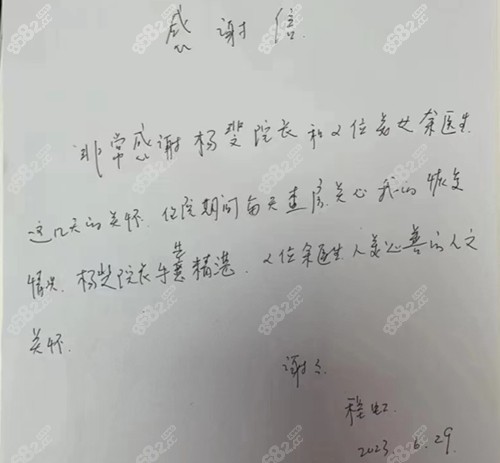 感谢信
非常感谢杨斐院长和2位美女余医生
这几天的关怀.住院期间每天查房关心我的恢复
情况.杨斐院长手艺精湛.2位余医生人美心善的人文
关怀.
谢谢.
虹.
2023.6.29